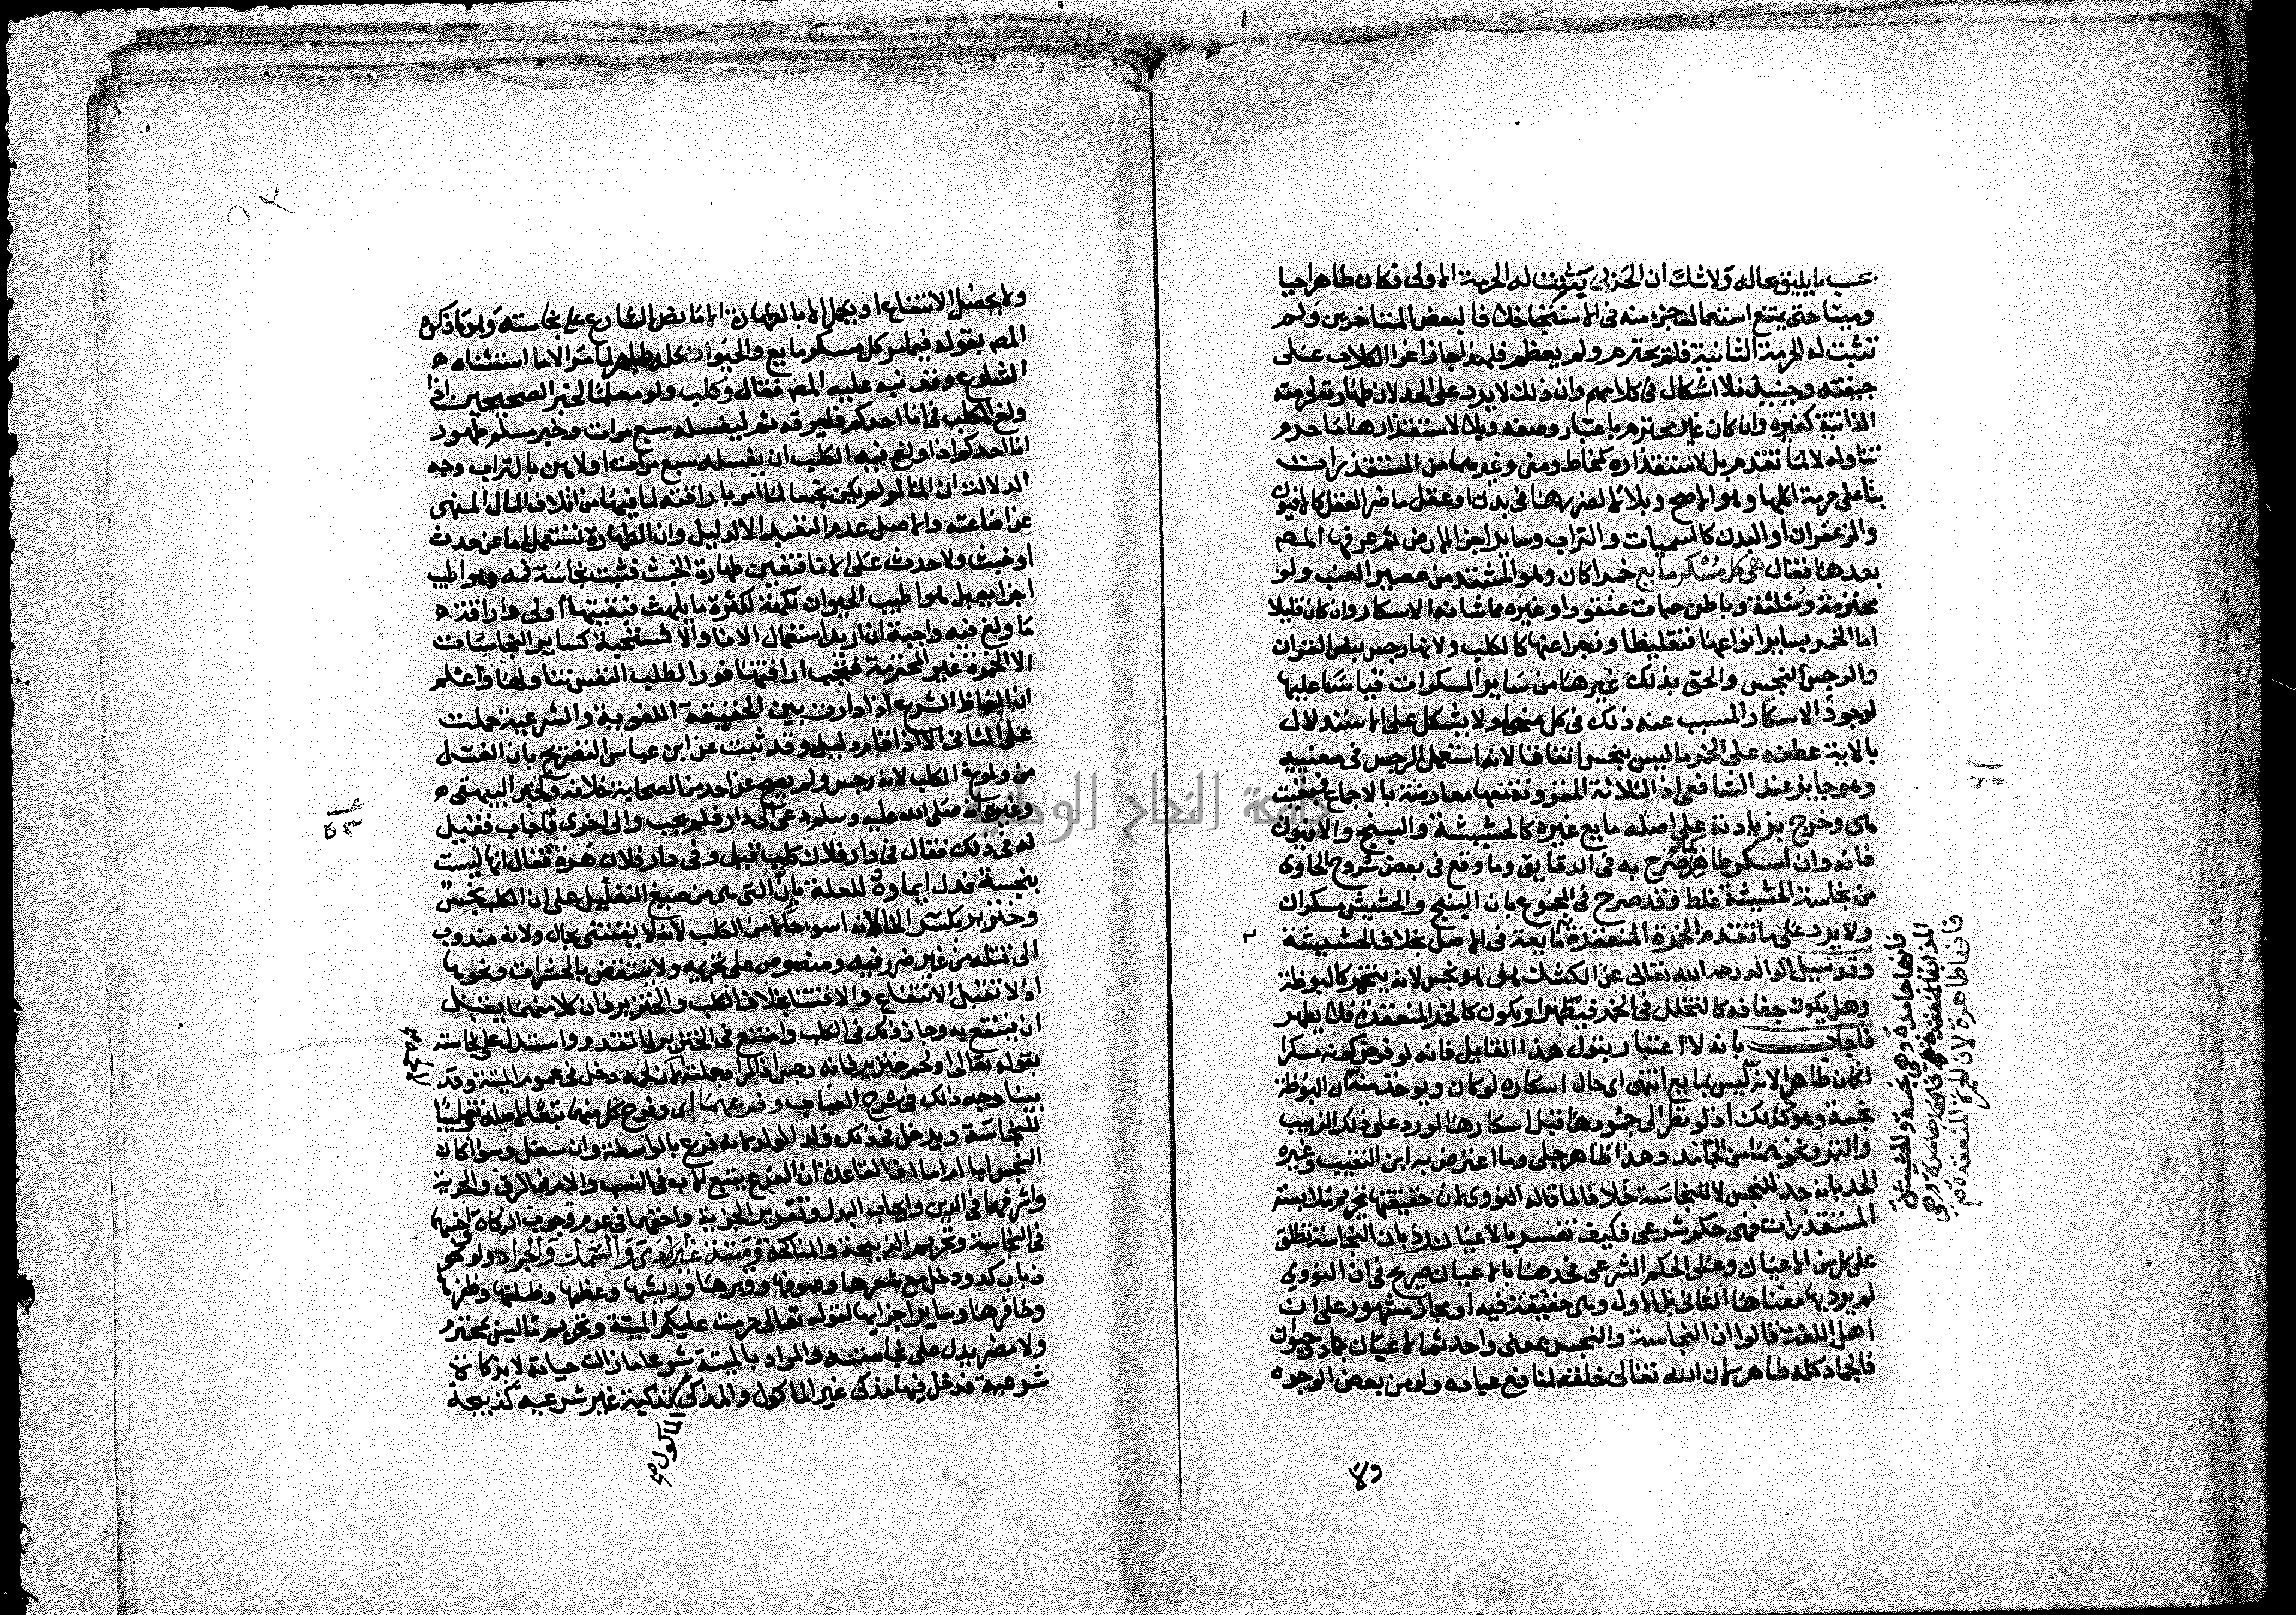 بحسب ما يليق بحاله ولا شك ان الحربي يثبت له الحرمة الاولى فكان طاهرا حيا
وميتا حتى يمتنع استعمال جزء منه في الاستنجا خلافا لبعض المتاخرين ولم
تثبت له الحرمة الثانية فلم يحترم ولم يعظم فلهذا جاز اغرا الكلاب على
جيفته فلا اشكال في كلامهم وان ذلك لا يرد على الحد لان طهارته لحرمته
الذاتية كغيره وان كان غير محترم باعتبار وصفه وبلا لاستقذارها ما حرم
تناوله لا لما تقدم بل لاستقذاره كمخاط ومني وغيرهما من المستقذرات
بنا على حرمة اكلها وهو الاصح وبلا لضررها في بدن او عقل ما ضر العقل كالافيون
والزعفران او البدن كالسميات والتراب وساير اجزا الارض ثم عرفها المص
بعدها فقال هي كل مسكر مايع خمرا كان وهو المشتد من عصير العنب ولو
محترمة ومثلثة وباطن حبات عنقود او غيره مما شانه الاسكار وان كان قليلا
اما الخمر بساير انواعها فتغليظا وزجرا عنها كالكلب ولانها رجس بنص القران
والرجس النجس والحق بذلك غيرها من ساير المسكرات قياسا عليها
لوجود الاسكار المسبب عنه ذلك في كل منهما ولا يشكل على الاستدلال
بالاية عطفه على الخمر ما ليس بنجس اتفاقا لانه استعمل الرجس في معنييه
وهو جايز عند الشافعي اذ الثلاثة المقرونة معها معارضة بالاجماع فبقيت
هي وخرج بزيادته على اصله مايع غيره كالحشيشة والبنج والافيون
فانه وان اسكر طاهر كما صرح به في الدقايق وما وقع في بعض شروح الحاوي
من نجاسة الحشيشة غلط وقد صرح في المجموع بان البنج والحشيش مسكران
ولا يرد على ما تقدم الخمرة المنعقدة مايعة في الاصل بخلاف الحشيشة
وقد سيل الوالد رحمه الله تعالى عن الكشك هل هو نجس لانه يتخمر كالبوظة
وهل يكون جفافه كالتخلل في الخمر فيطهر او يكون كالخمر المنعقدة فلا يطهر
فاجاب بانه لا اعتبار بقول هذا القايل فانه لو فرض كونه مسكرا
لكان طاهرا لانه ليس بمايع انتهى اي حال اسكاره لو كان ويوخذ منه ان البوظة
نجسة وهو كذلك اذ لو نظر الى جمودها قبل اسكارها لورد على ذلك الزبيب
والتمر ونحوهما من الجامد وهذا ظاهر جلي وما اعترض به ابن النقيب وغيره
الحد بانه حد للنجس لا للنجاسة خلافا لما قاله النووي لان حقيقتها تحريم ملابسة
المستقذرات فهي حكم شرعي فكيف تفسر بالاعيان رد بان النجاسة تطلق
على كل من الاعيان وعلى الحكم الشرعي فحدها بالاعيان صريح في ان النووي
لم يرد بها معناها الثاني بل الاول وهي حقيقة فيه او مجاز مشهور على ان
اهل اللغة قالوا ان النجاسة والنجس بمعنى واحد ثم الاعيان جماد وحيوان
فالجماد كله طاهر لان الله تعالى خلقه لمنافع عباده ولو من بعض الوجوه
فانها جامدة وهي نجسة والحشيش
المذاب فانها
فانها طاهرة لان الخمرة المنعقدة
ولا
٥٢
ولا يحصل الانتفاع او يكمل الا بالطهارة الا ما نص الشارع على نجاسته وهو ما ذكره
المص بقوله فيما مر كل مسكر مايع والحيوان كله طاهر لما مر الا ما استثناه
الشارع وقد نبه عليه المص فقال وكلب ولو معلما لخبر الصحيحين اذا
ولغ الكلب في انا احدكم فليرقه ثم ليغسله سبع مرات وخبر مسلم طهور
انا احدكم اذا ولغ فيه الكلب ان يغسله سبع مرات اولاهن بالتراب وجه
الدلالة ان الماء لو لم يكن نجسا لما امر باراقته لما فيها من اتلاف المال المنهي
عن اضاعته والاصل عدم التعبد الا لدليل وان الطهارة تستعمل اما عن حدث
او خبث ولا حدث على الانا فتعين طهارة الخبث فثبت نجاسة فمه وهو اطيب
اجزايه بل هو اطيب الحيوان نكهة لكثرة ما يلهث فبقيتها اولى واراقة
ما ولغ فيه واجبة ان اريد استعمال الانا والا فمستحبة كساير النجاسات
الا الخمرة غير المحترمة فتجب اراقتها فورا لطلب النفس تناولها واعلم
ان الفاظ الشرع اذا دارت بين الحقيقة اللغوية والشرعية حملت
على الثاني الا اذا قام دليل وقد ثبت عن ابن عباس التصريح بان الغسل
من ولوغ الكلب لانه رجس ولم يصح عن احد من الصحابة خلافه ولخبر البيهقي
وغيره انه صلى الله عليه وسلم دعي الى دار فلم يجب والى اخرى فاجاب فقيل
له في ذلك فقال في دار فلان كلب قيل وفي دار فلان هرة فقال انها ليست
بنجسة فدل ايماوه للعلة بان التي هي من صيغ التعليل على ان الكلب نجس
وخنزير بكسر الخا لانه اسوء حالا من الكلب لانه لا يقتنى بحال ولانه مندوب
الى قتله من غير ضرر فيه ومنصوص على تحريمه ولا ينتقض بالحشرات ونحوها
اذ لا تقبل الانتفاع والاقتنا بخلاف الكلب والخنزير فان كلا منهما يقبل
ان ينتفع به وجاز ذلك في الكلب وامتنع في الخنزير لما تقدم واستدل على نجاسته
بقوله تعالى او لحم خنزير فانه رجس اذ المراد جملته لان لحمه دخل في عموم الميتة وقد
بينا وجه ذلك في شرح العباب وفرعهما اي وفرع كل منهما تبعا لاصله تغليبا
للنجاسة ويدخل في ذلك ولد المولد لانه فرع بالواسطة وان سفل وسوا كان
النجس ابا ام اما اذ القاعدة ان الفرع يتبع الاب في النسب والام في الرق والحرية
واشرفهما في الدين وايجاب البدل وتقرير الجزية واخفهما في عدم وجوب الزكاة واخسهما
في النجاسة وتحريم الذبيحة والمناكحة وميتة غير ادمي والسمك والجراد ولو نحو
ذباب كدود خل مع شعرها وصوفها ووبرها وريشها وعظمها وظلفها وظفرها
وحافرها وساير اجزايها لقوله تعالى حرمت عليكم الميتة وتحريم ما ليس بمحترم
ولا مضر يدل على نجاسته والمراد بالميتة شرعا ما زالت حياته لا بذكاة
شرعية فدخل فيها مذكى غير الماكول والمذكى تذكية غير شرعية كذبيحة
الماكول صح